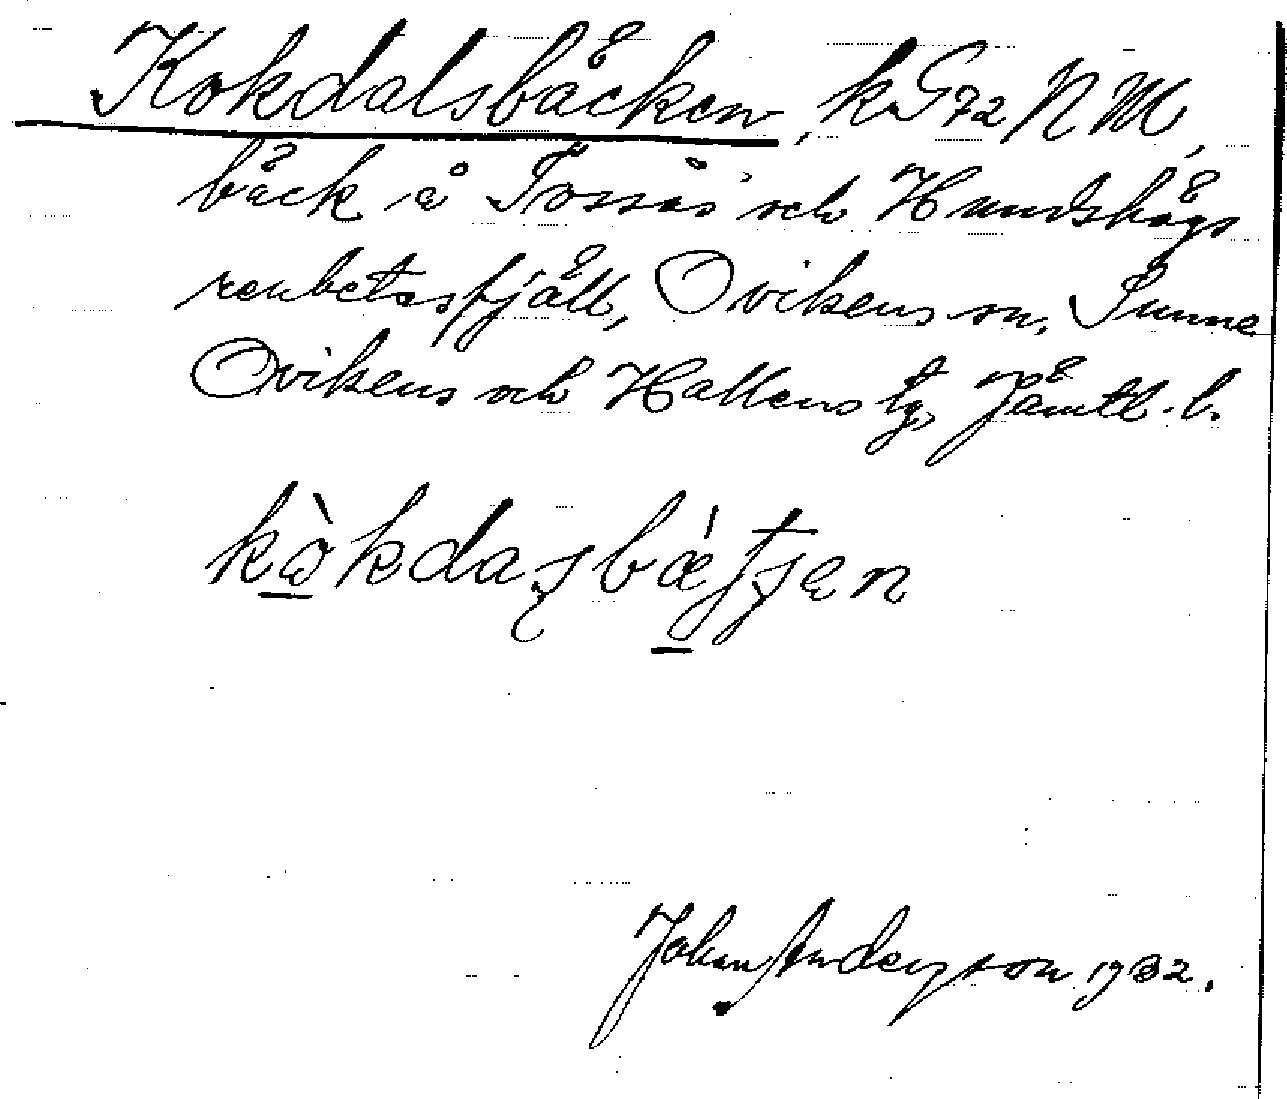 Kokdalsbäcken, kG72 NM,
bäck å Tossås och Hundshögs
renbetesfjäll, Ovikens sn. Sunne
Ovikens och Hallens tg, Jämtl. l.
kòkdaʂbǽtʃen
John Anderson 1932.